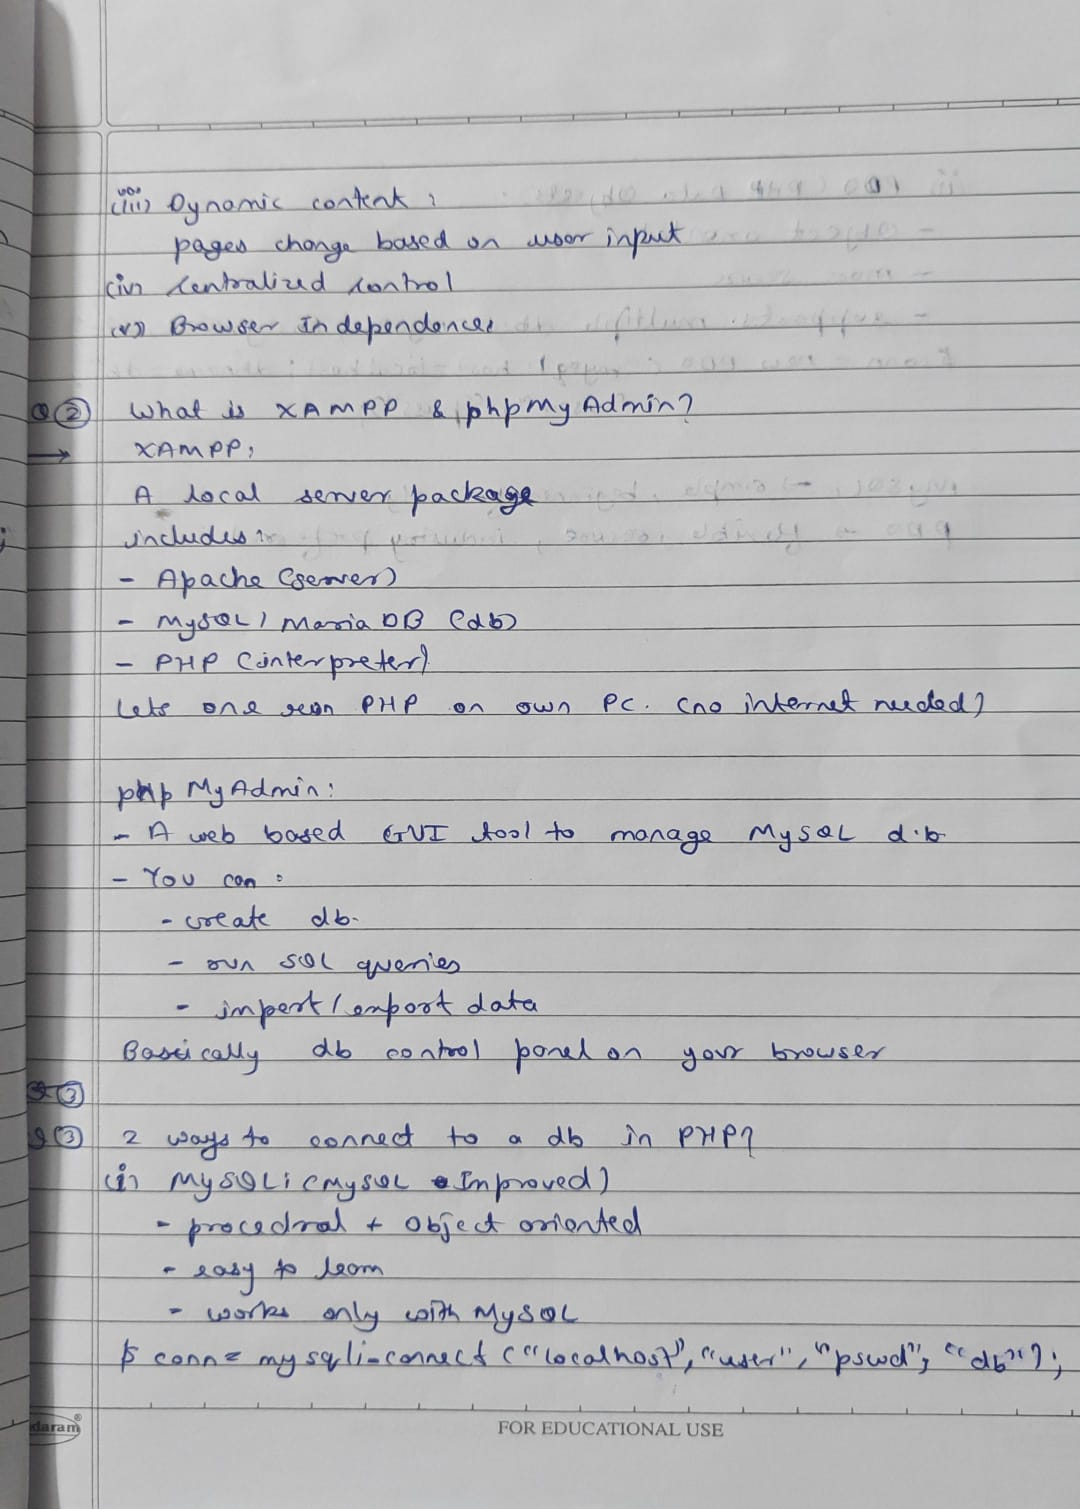 (iii) Dynamic content :
pages change based on user input
(iv) Centralized control
(v) Browser Independence
Q ② What is XAMPP & phpMyAdmin?
→ XAMPP:
A local server package
includes :
- Apache (server)
- MySQL / Maria DB (db)
- PHP (interpreter)
Lets one run PHP on own PC. (no internet needed)
php MyAdmin :
- A web based GUI tool to manage MySQL d.b
- You can :
- create db.
- run SQL queries
- import / export data
Basically db control panel on your browser
Q ③
Q ③ 2 ways to connect to a db in PHP?
(i) MySQLi (MySQL Improved)
- procedral + Object oriented
- easy to learn
- works only with MySQL
$ conn = mysqli_connect ("localhost", "user", "pswd", "db");
daram®
FOR EDUCATIONAL USE